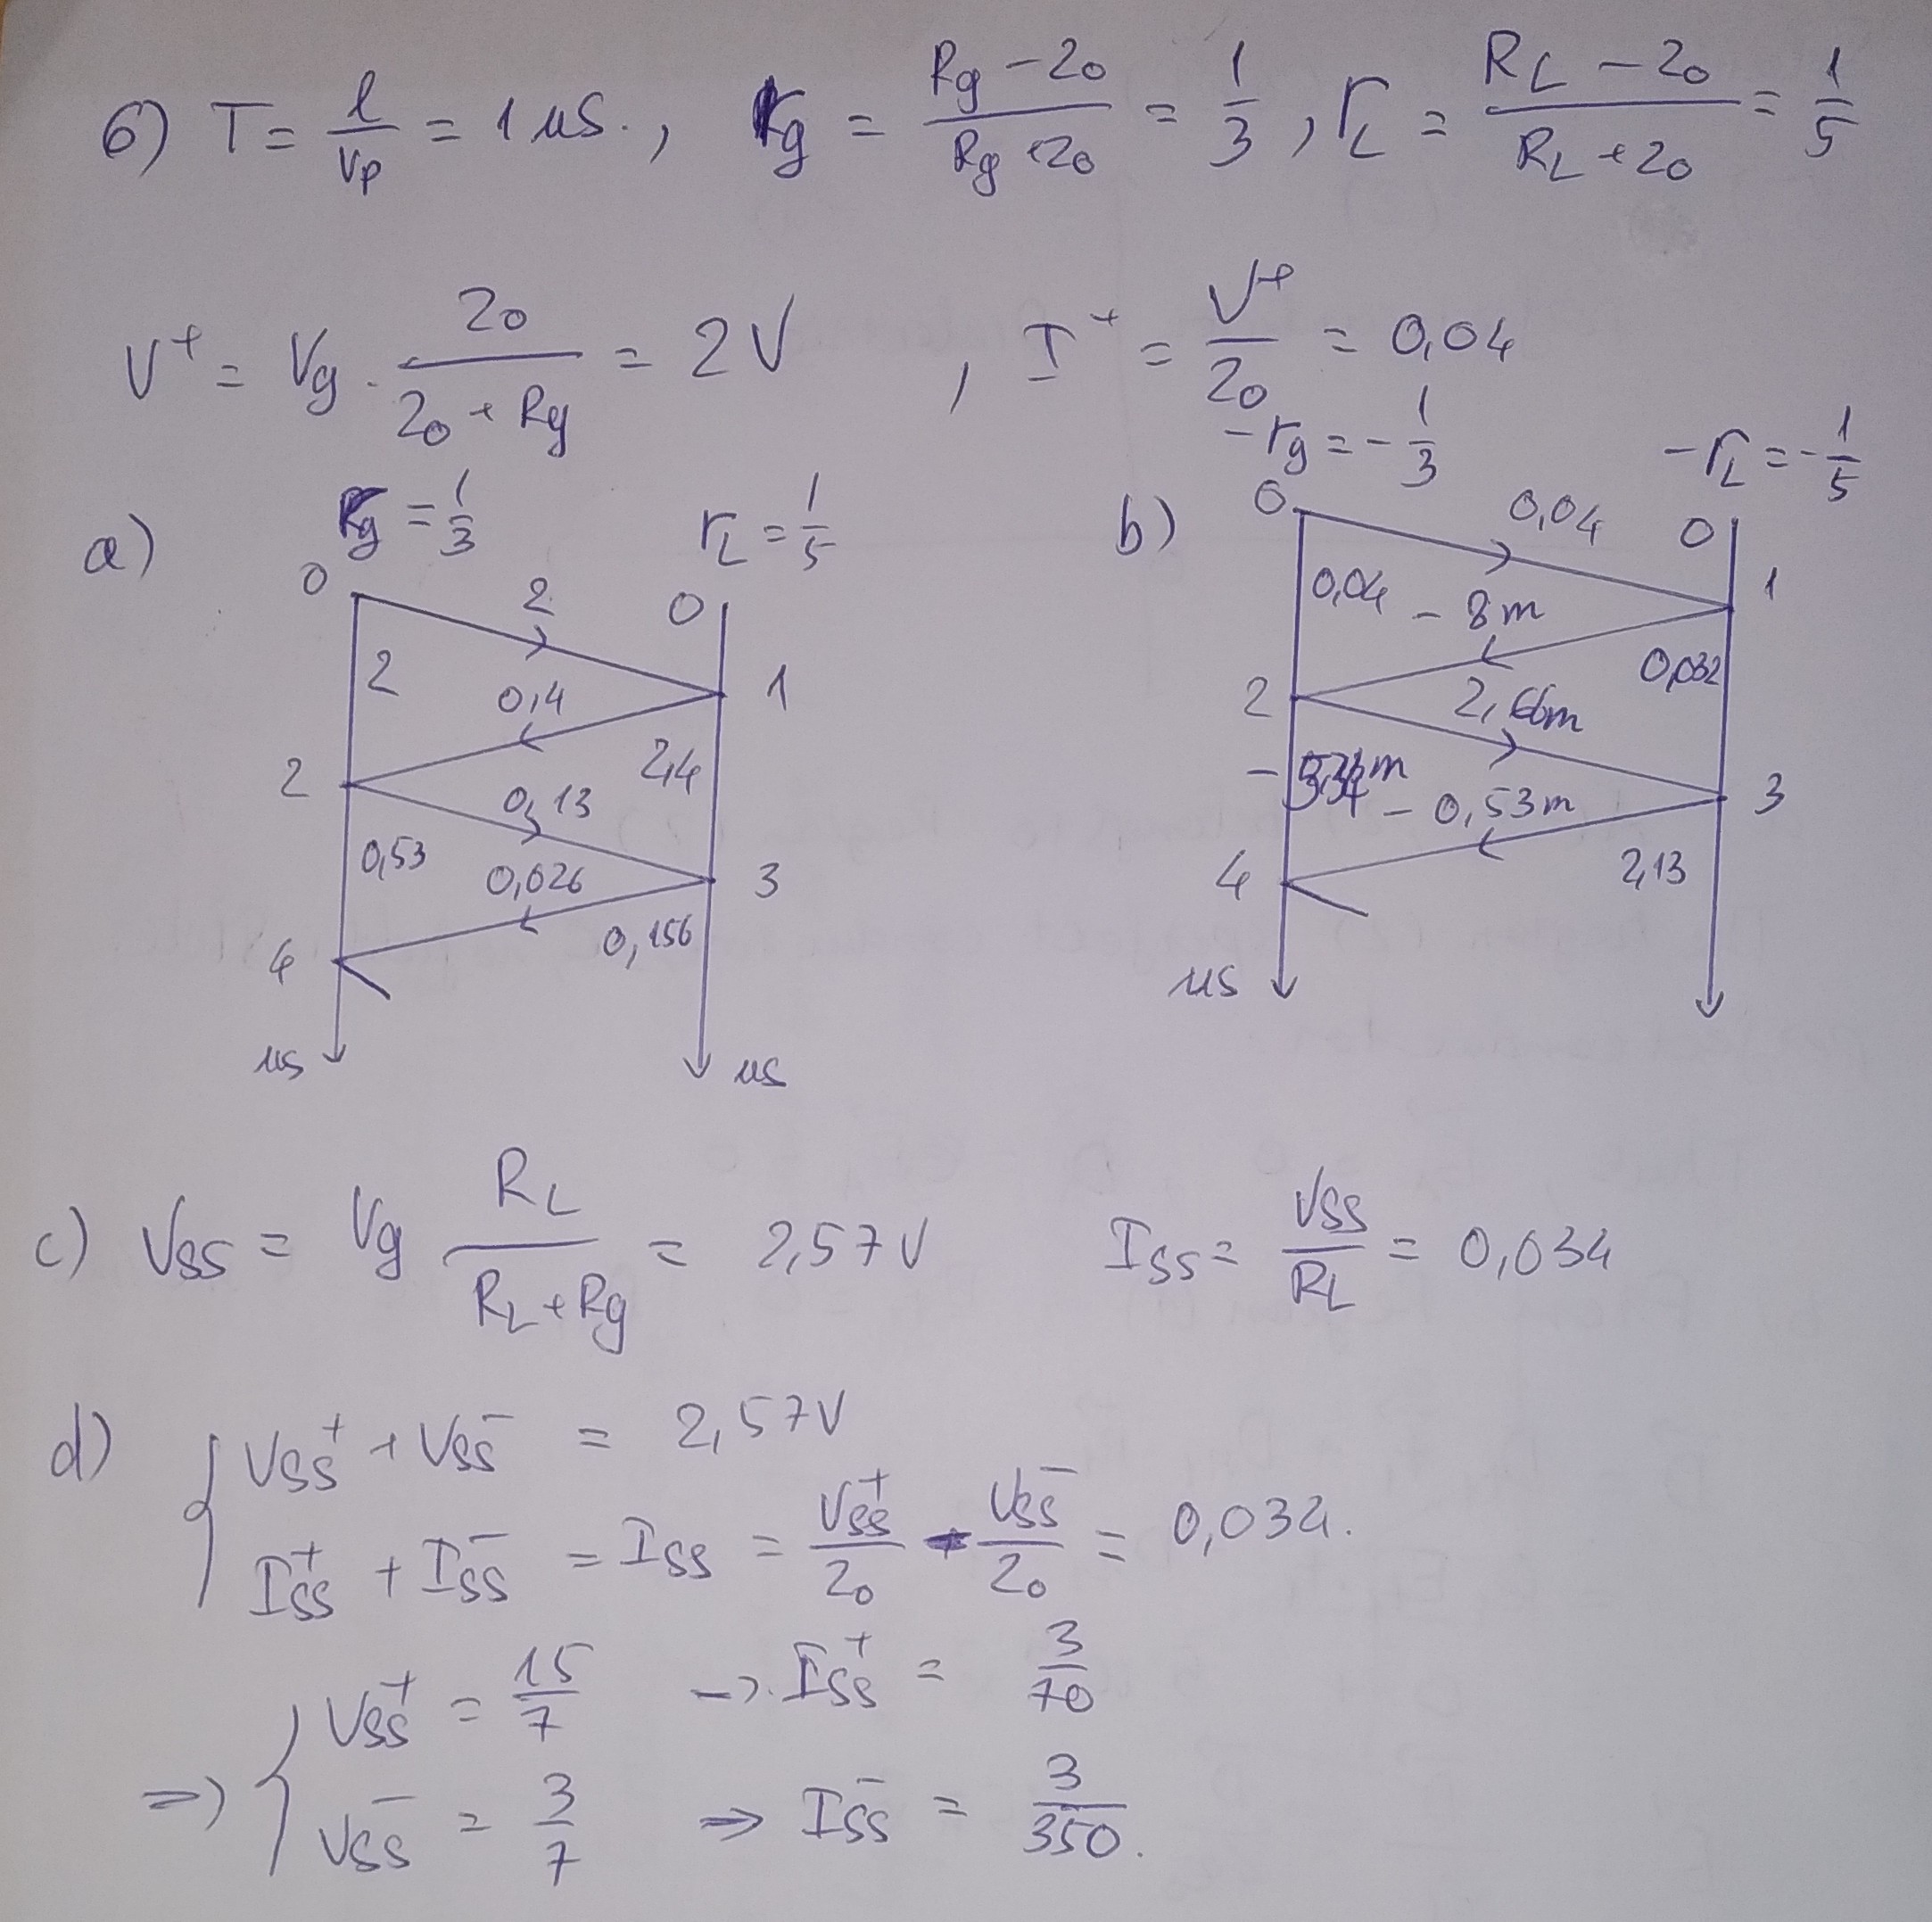 6) T = l / Vp = 1 us. , rg = (Rg - Z0) / (Rg + Z0) = 1/3 , rL = (RL - Z0) / (RL + Z0) = 1/5
V+ = Vg . Z0 / (Z0 + Rg) = 2 V , I+ = V+ / Z0 = 0,04
a) rg = 1/3 rL = 1/5
0 2 0
2 0,4 1
2 0,13 2,4
0,53 0,026 3
4 0,156
us us
b) -rg = -1/3 -rL = -1/5
0 0,04 0
0,04 -8m 1
2 2,66m 0,032
-0,53m 3
4 2,13
us
c) Vss = Vg RL / (RL + Rg) = 2,57 V Iss = Vss / RL = 0,034
d) Vss+ + Vss- = 2,57 V
Iss+ + Iss- = Iss = Vss+ / Z0 - Vss- / Z0 = 0,034.
=> Vss+ = 15/7 -> Iss+ = 3/70
Vss- = 3/7 => Iss- = 3/350.